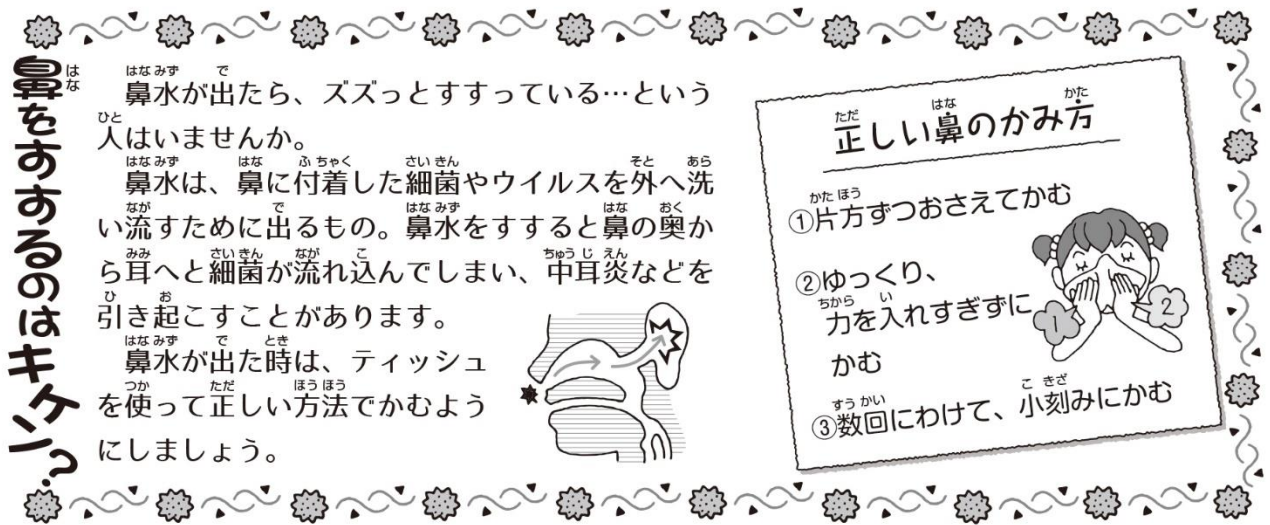 鼻をすするのはキケン?
鼻水が出たら、ズズっとすすっている…という
人はいませんか。
鼻水は、鼻に付着した細菌やウイルスを外へ洗
い流すために出るもの。鼻水をすすると鼻の奥か
ら耳へと細菌が流れ込んでしまい、中耳炎などを
引き起こすことがあります。
鼻水が出た時は、ティッシュ
を使って正しい方法でかむよう
にしましょう。
正しい鼻のかみ方
①片方ずつおさえてかむ
②ゆっくり、
力を入れすぎずに
かむ
③数回にわけて、小刻みにかむ
1
2